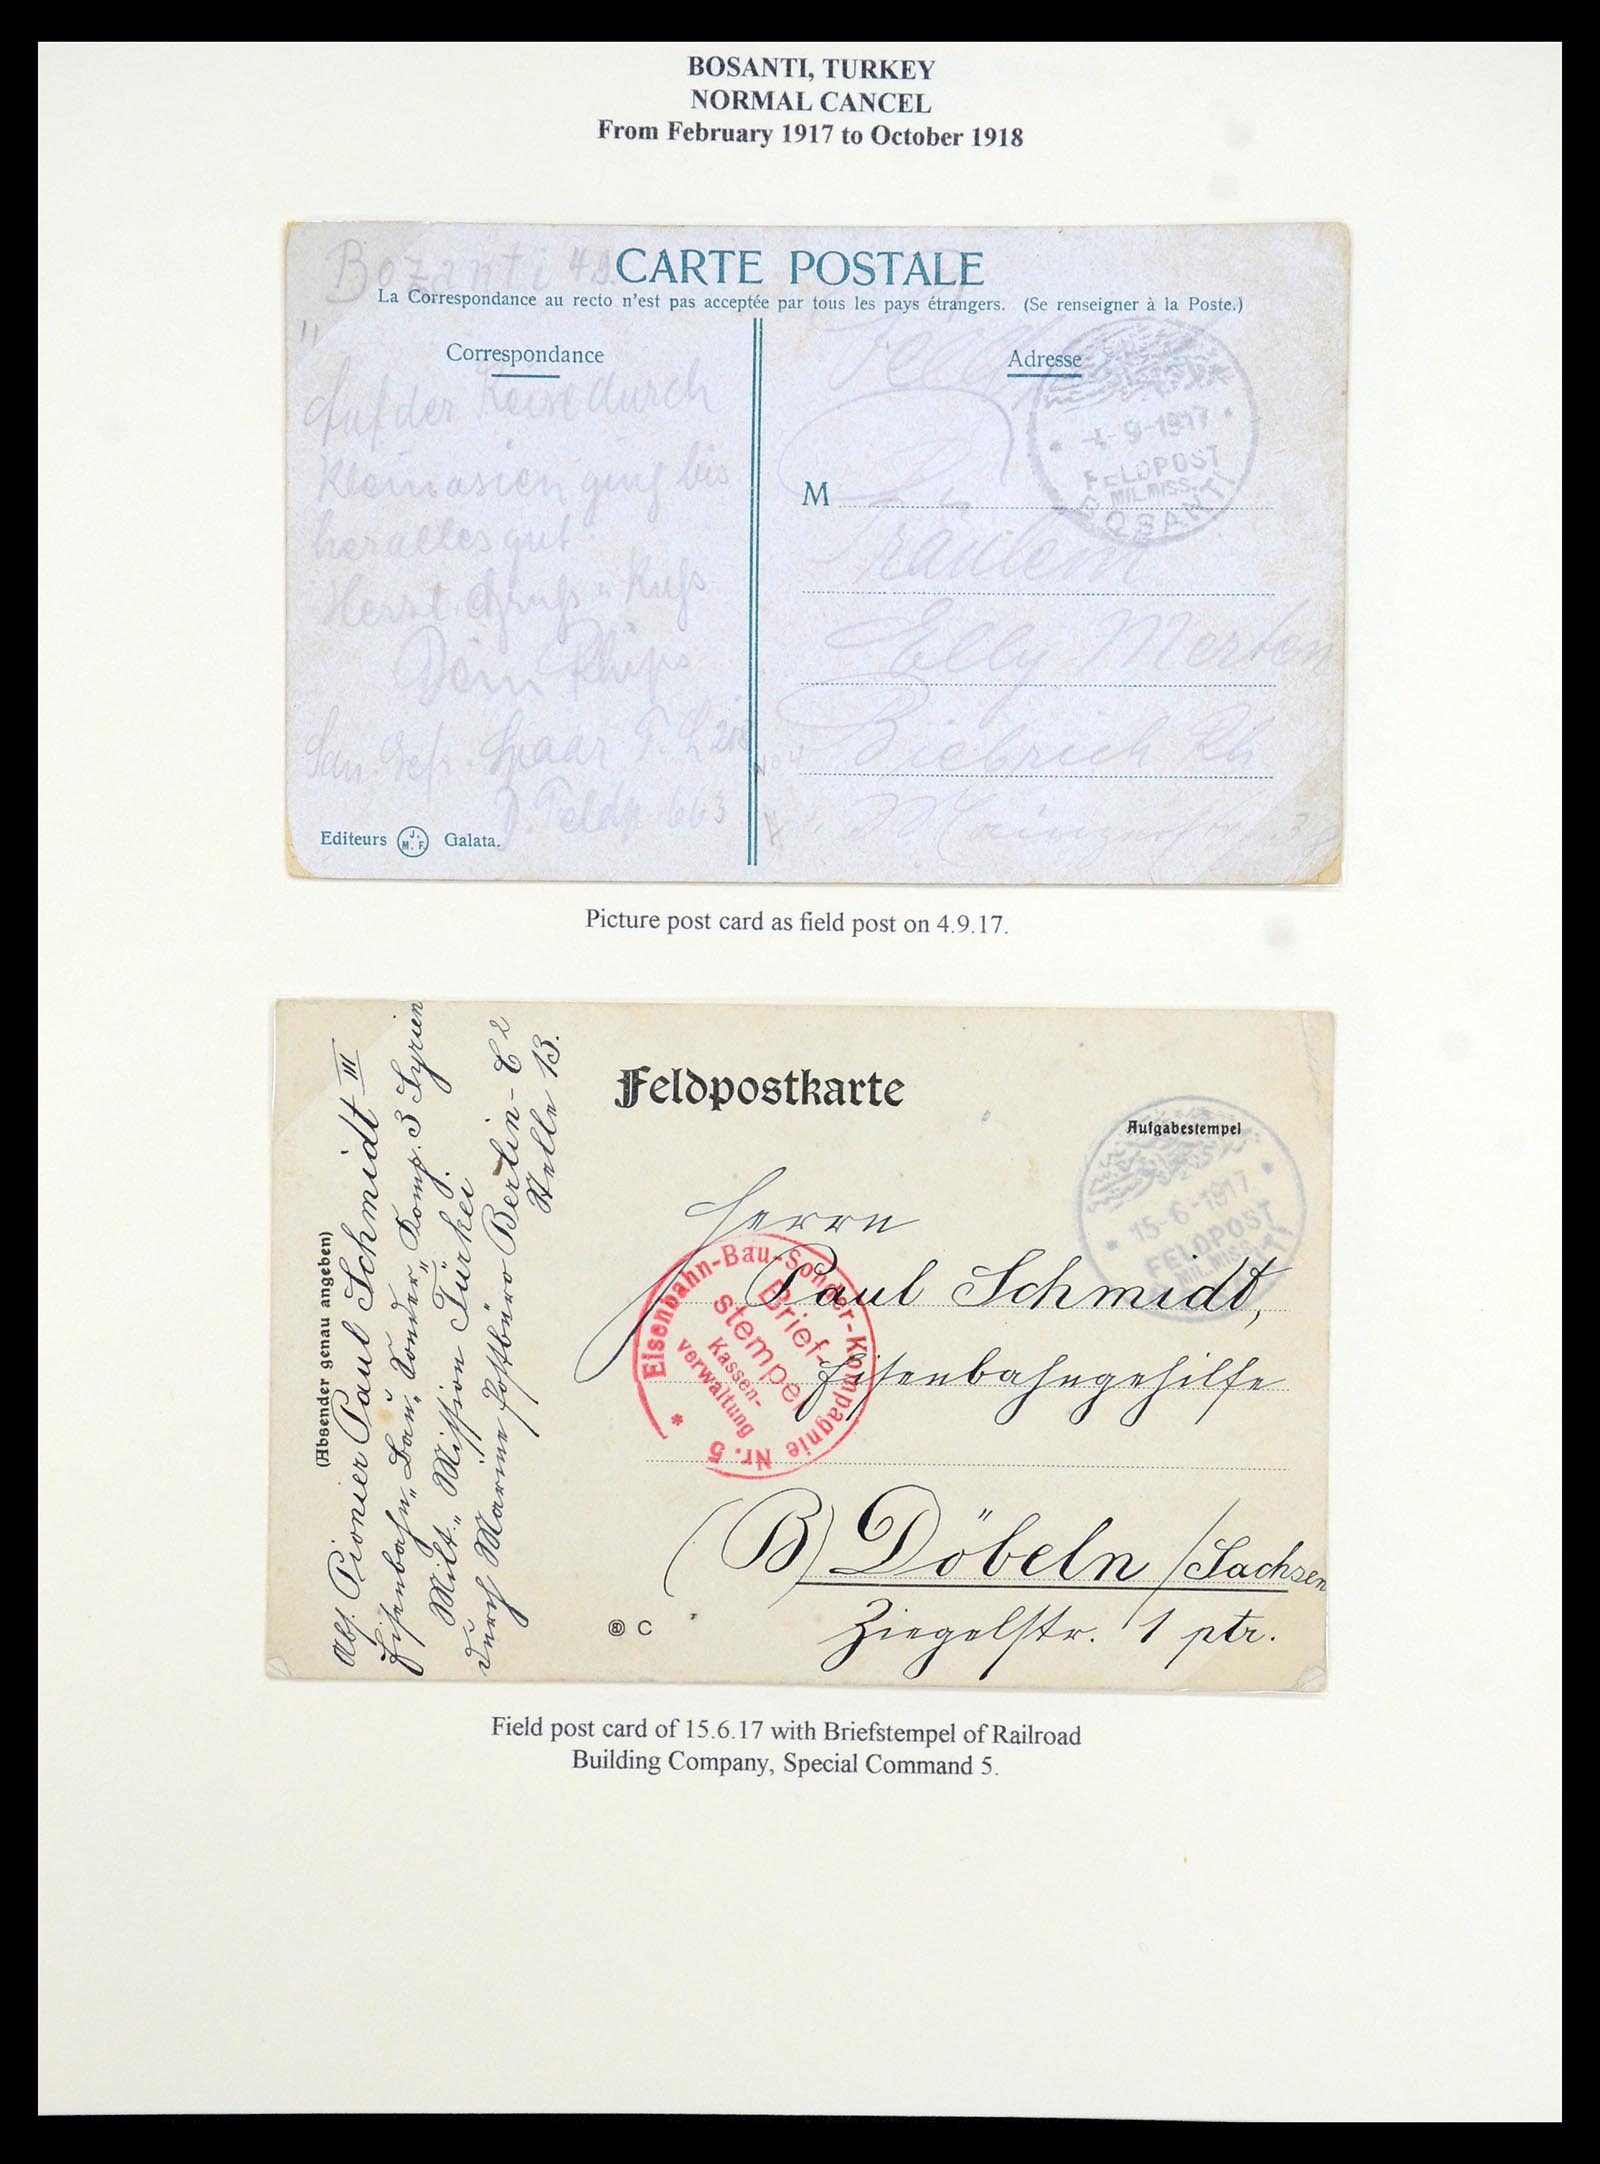 BOSANTI, TURKEY
NORMAL CANCEL
From February 1917 to October 1918
Bozanti 4.9.
CARTE POSTALE
La Correspondance au recto n'est pas acceptée par tous les pays étrangers. (Se renseigner à la Poste.)
Correspondance
Adresse
Auf der Reise durch
Kleinasien ging bis
her alles gut
Herzl. Gruß u. Kuß
Dein
San. Gefr. Spaar
D. Feldp. 663
Editeurs J. M. F. Galata.
-4-9-1917
FELDPOST
MIL.MISS.
BOSANTI
M
Fräulein
Elly Merten
Biebrich Rh
Picture post card as field post on 4.9.17.
(Absender genau angeben)
Abs. Pionier Paul Schmidt III
Eisenbahn „Bau„ Sonder„ Komp. 3 Syrien
Milt„ Mission Türkei.
durch Marine Postbüro Berlin-C2
Stelle 13.
Feldpostkarte
Aufgabestempel
15-6-1917
FELDPOST
MIL.MISS.
Herrn
Paul Schmidt,
Eisenbahngehilfe
(B) Döbeln /Sachsen
Ziegelstr. 1 ptr.
Eisenbahn-Bau-Sonder-Kompagnie Nr. 5
Brief-
stempel
Kassen-
verwaltung
C
Field post card of 15.6.17 with Briefstempel of Railroad
Building Company, Special Command 5.